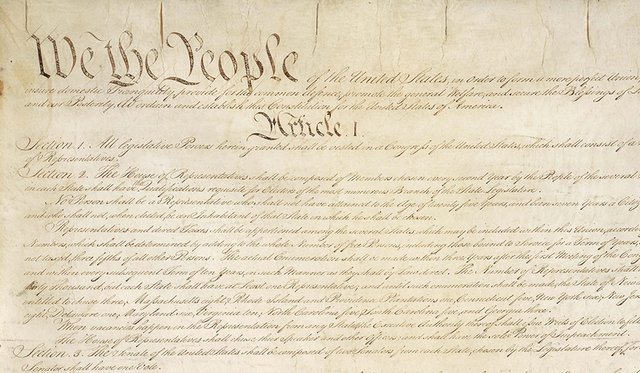 We the People of the United States, in Order to form a more perfect Union
insure domestic Tranquility, provide for the common defence, promote the general Welfare, and secure the Blessings of
and our Posterity, do ordain and establish this Constitution for the United States of America.
Article. I.
Section. 1. All legislative Powers herein granted shall be vested in a Congress of the United States, which shall consist of a
of Representatives.
Section. 2. The House of Representatives shall be composed of Members chosen every second Year by the People of the several
in each State shall have the Qualifications requisite for Electors of the most numerous Branch of the State Legislature.
No Person shall be a Representative who shall not have attained to the Age of twenty five Years, and been seven Years a
and who shall not, when elected, be an Inhabitant of that State in which he shall be chosen.
Representatives and direct Taxes shall be apportioned among the several States which may be included within this Union, according
Numbers, which shall be determined by adding to the whole Number of free Persons, including those bound to Service for a Term of Years
not taxed, three fifths of all other Persons. The actual Enumeration shall be made within three Years after the first Meeting of the
and within every subsequent Term of ten Years, in such Manner as they shall by Law direct. The Number of Representatives shall
thirty Thousand, but each State shall have at Least one Representative; and until such enumeration shall be made, the State of New
entitled to chuse three, Massachusetts eight, Rhode-Island and Providence Plantations one, Connecticut five, New-York six, New
eight, Delaware one, Maryland six, Virginia ten, North Carolina five, South Carolina five, and Georgia three.
When vacancies happen in the Representation from any State, the Executive Authority thereof shall issue Writs of Election to
The House of Representatives shall chuse their Speaker and other Officers; and shall have the sole Power of Impeachment.
Section. 3. The Senate of the United States shall be composed of two Senators from each State, chosen by the Legislature thereof, for
Senator shall have one Vote.